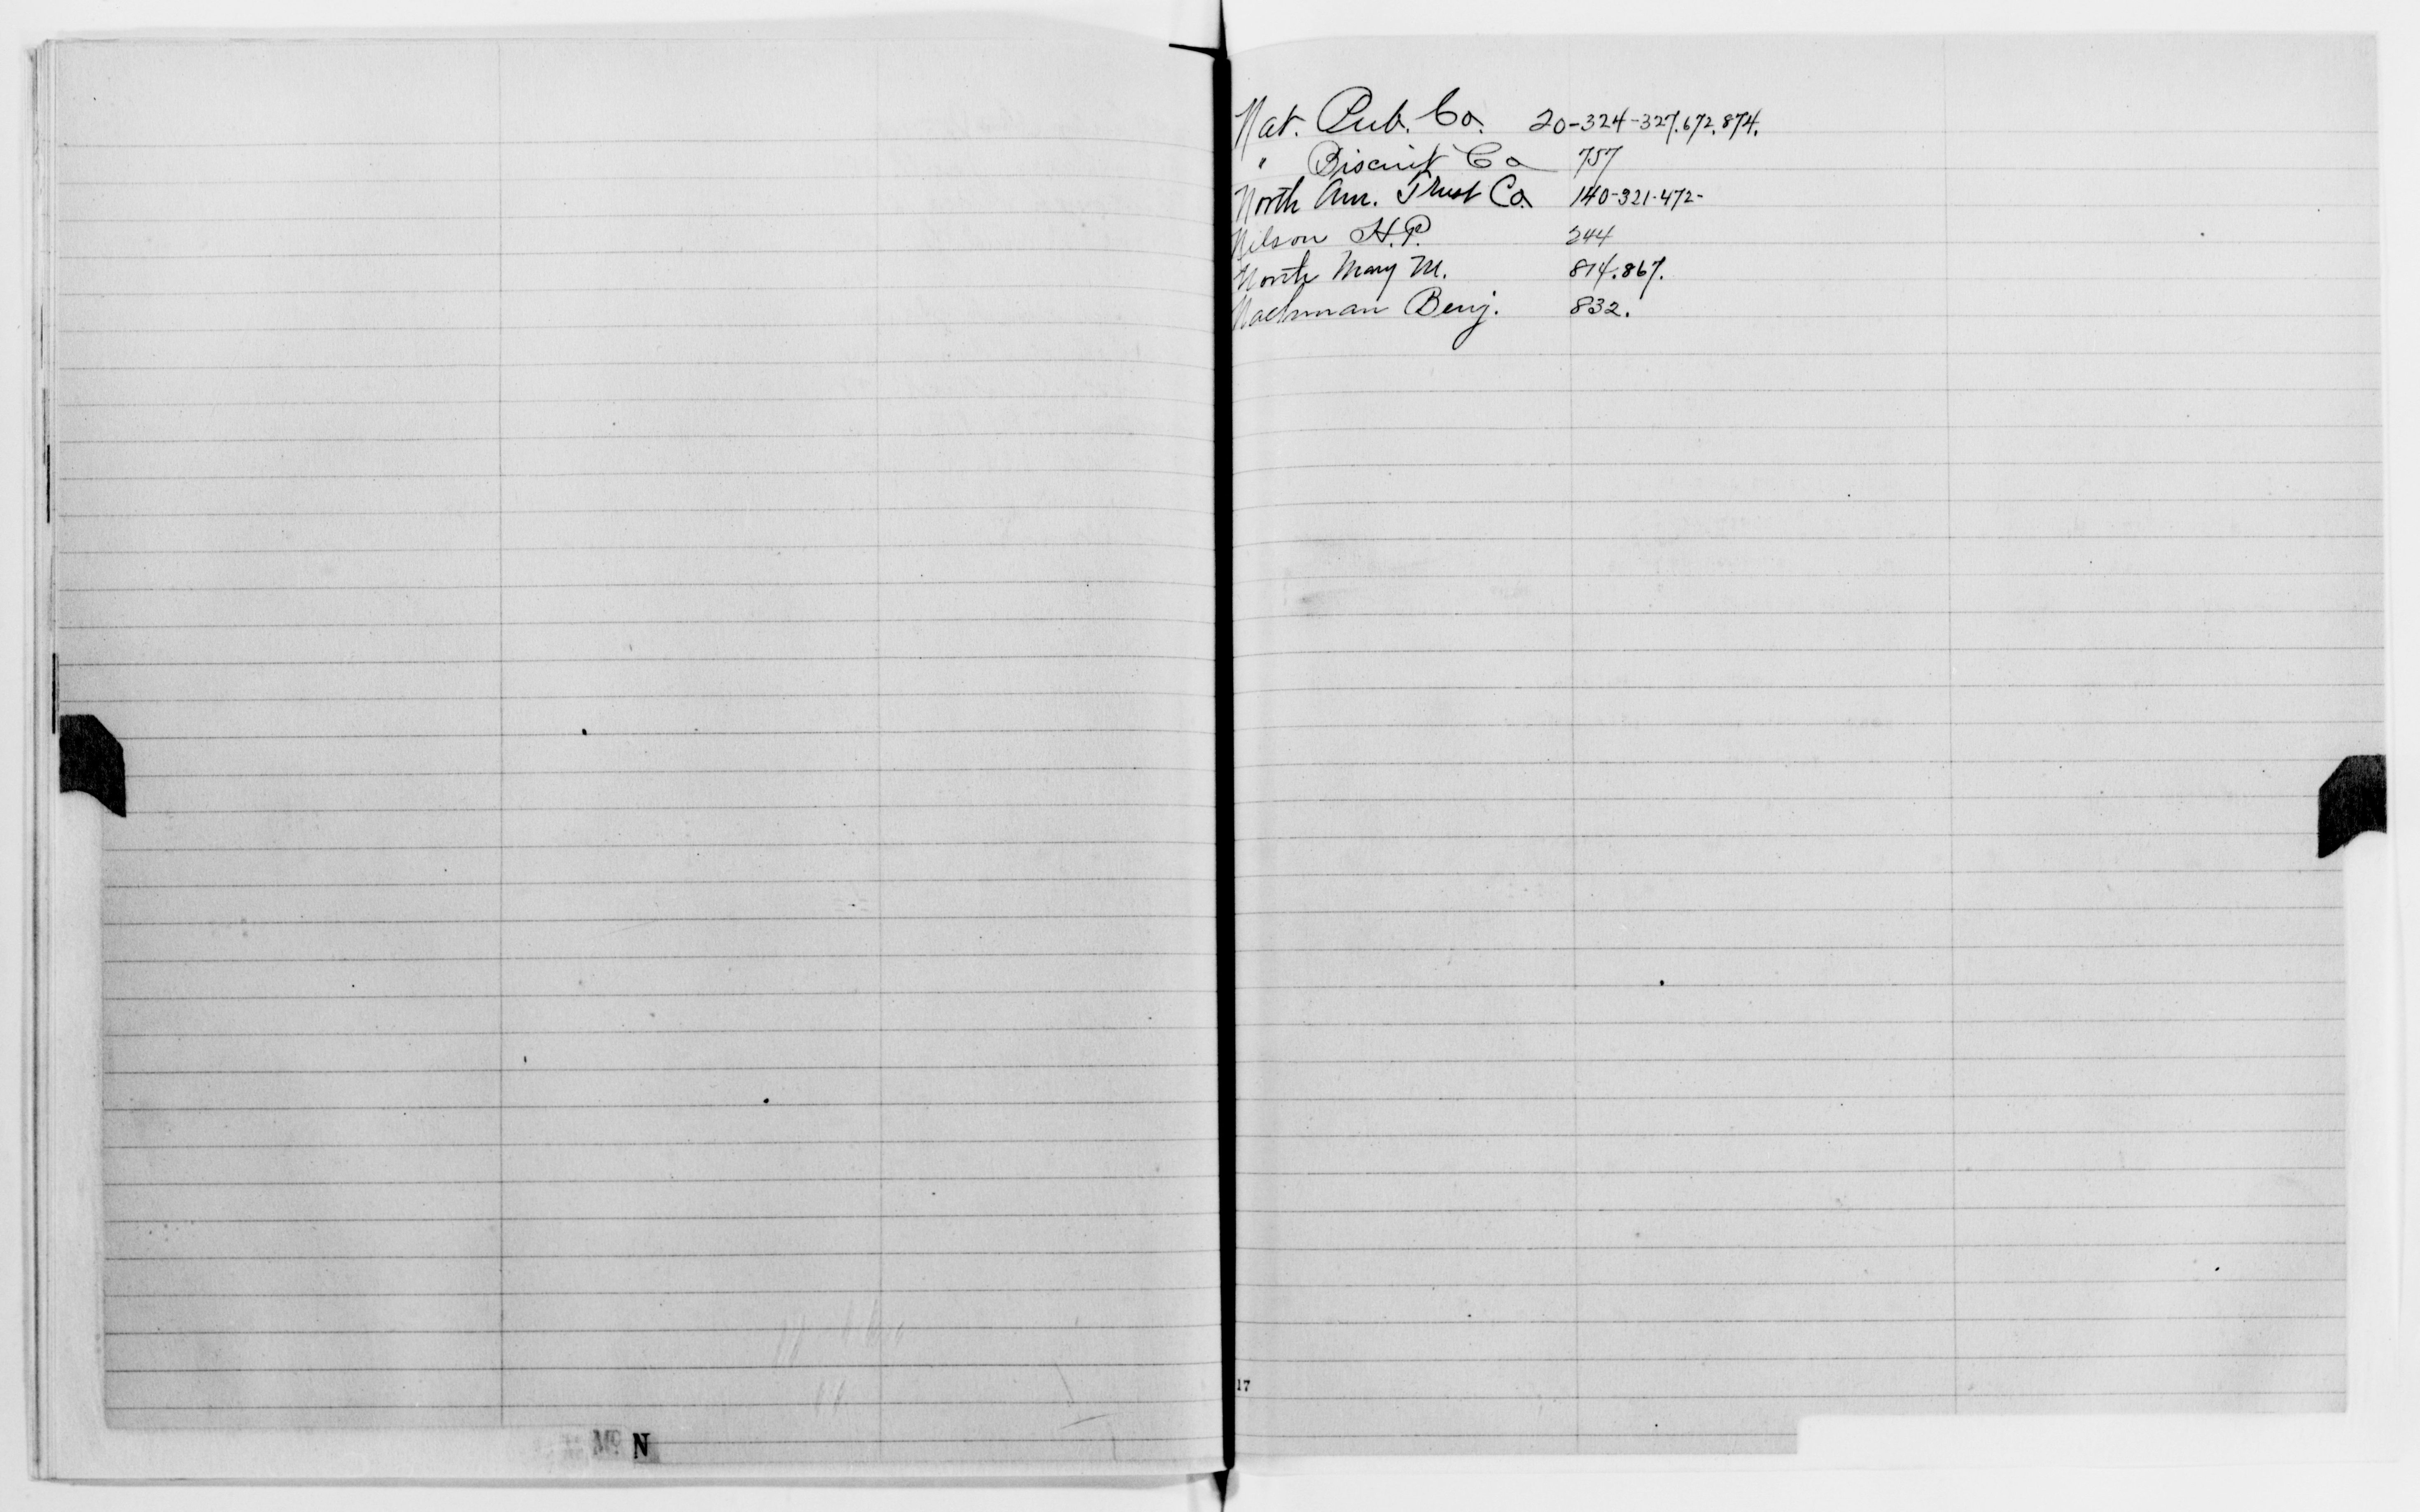 Nat. Pub. Co. 20-324-327.672.874.
" Biscuit Co 757
North Am. Trust Co. 140-321-472-
Nilson H.P. 244
North Mary M. 814.867.
Nachman Benj. 832.
17
Mc N